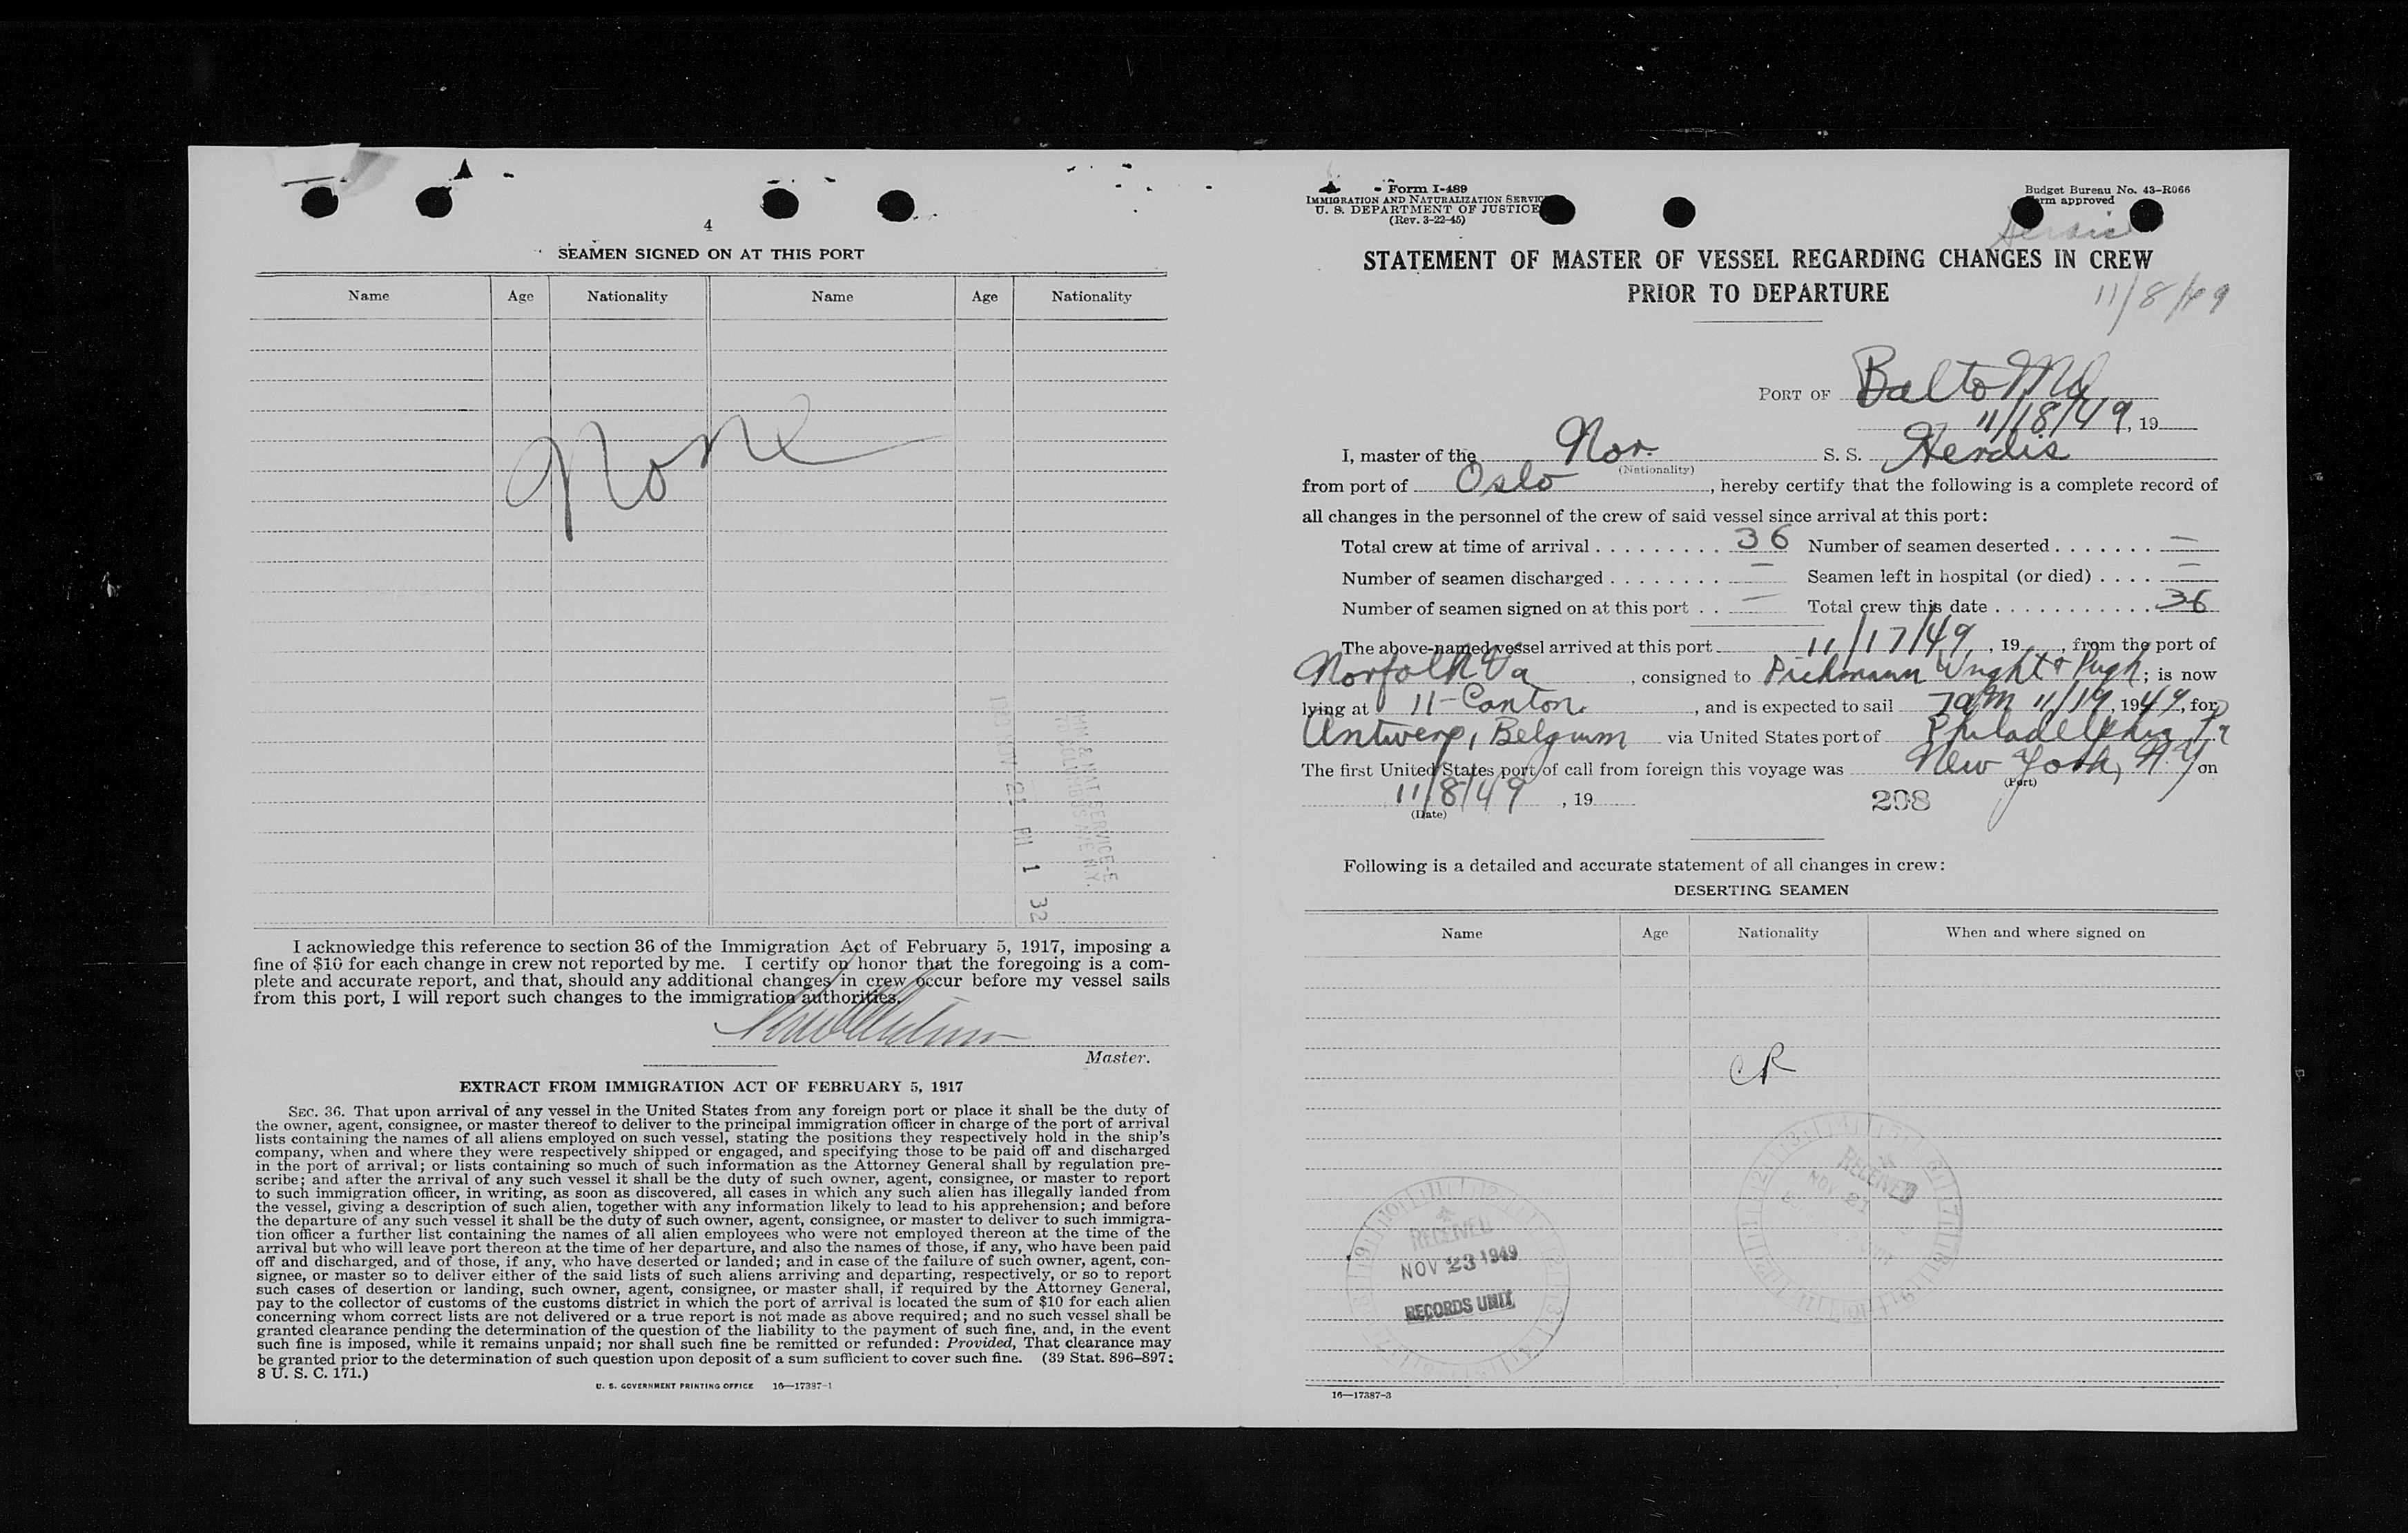 4
SEAMEN SIGNED ON AT THIS PORT
Name Age Nationality Name Age Nationality
None
IMM & NAT. SERVICE
70 COLUMBUS AVE N.Y.
1949 NOV 21 PM 1 32
I acknowledge this reference to section 36 of the Immigration Act of February 5, 1917, imposing a
fine of $10 for each change in crew not reported by me. I certify on honor that the foregoing is a com-
plete and accurate report, and that, should any additional changes in crew occur before my vessel sails
from this port, I will report such changes to the immigration authorities.
Master.
EXTRACT FROM IMMIGRATION ACT OF FEBRUARY 5, 1917
SEC. 36. That upon arrival of any vessel in the United States from any foreign port or place it shall be the duty of
the owner, agent, consignee, or master thereof to deliver to the principal immigration officer in charge of the port of arrival
lists containing the names of all aliens employed on such vessel, stating the positions they respectively hold in the ship's
company, when and where they were respectively shipped or engaged, and specifying those to be paid off and discharged
in the port of arrival; or lists containing so much of such information as the Attorney General shall by regulation pre-
scribe; and after the arrival of any such vessel it shall be the duty of such owner, agent, consignee, or master to report
to such immigration officer, in writing, as soon as discovered, all cases in which any such alien has illegally landed from
the vessel, giving a description of such alien, together with any information likely to lead to his apprehension; and before
the departure of any such vessel it shall be the duty of such owner, agent, consignee, or master to deliver to such immigra-
tion officer a further list containing the names of all alien employees who were not employed thereon at the time of the
arrival but who will leave port thereon at the time of her departure, and also the names of those, if any, who have been paid
off and discharged, and of those, if any, who have deserted or landed; and in case of the failure of such owner, agent, con-
signee, or master so to deliver either of the said lists of such aliens arriving and departing, respectively, or so to report
such cases of desertion or landing, such owner, agent, consignee, or master shall, if required by the Attorney General,
pay to the collector of customs of the customs district in which the port of arrival is located the sum of $10 for each alien
concerning whom correct lists are not delivered or a true report is not made as above required; and no such vessel shall be
granted clearance pending the determination of the question of the liability to the payment of such fine, and, in the event
such fine is imposed, while it remains unpaid; nor shall such fine be remitted or refunded: Provided, That clearance may
be granted prior to the determination of such question upon deposit of a sum sufficient to cover such fine. (39 Stat. 896–897;
8 U. S. C. 171.)
U. S. GOVERNMENT PRINTING OFFICE 16—17387-1
Form I-489
IMMIGRATION AND NATURALIZATION SERVICE
U. S. DEPARTMENT OF JUSTICE
(Rev. 3-22-45)
Budget Bureau No. 43-R066
Form approved
Herdis
STATEMENT OF MASTER OF VESSEL REGARDING CHANGES IN CREW
PRIOR TO DEPARTURE
11/8/49
PORT OF Balto Md
11/18/49, 19
I, master of the Nor. S. S. Herdis
(Nationality)
from port of Oslo, hereby certify that the following is a complete record of
all changes in the personnel of the crew of said vessel since arrival at this port:
Total crew at time of arrival 36 Number of seamen deserted —
Number of seamen discharged — Seamen left in hospital (or died) —
Number of seamen signed on at this port — Total crew this date 36
The above-named vessel arrived at this port 11/17/49, 19, from the port of
Norfolk Va, consigned to Wright & Pugh; is now
lying at 11-Canton, and is expected to sail 7am 11/19, 1949, for
Antwerp, Belgium via United States port of Philadelphia Pa
The first United States port of call from foreign this voyage was New York, N.Y on
(Port)
11/8/49, 19
(Date)
208
Following is a detailed and accurate statement of all changes in crew:
DESERTING SEAMEN
Name Age Nationality When and where signed on
CR
RECEIVED
NOV 21
RECEIVED
NOV 23 1949
RECORDS UNIT
16—17387-3